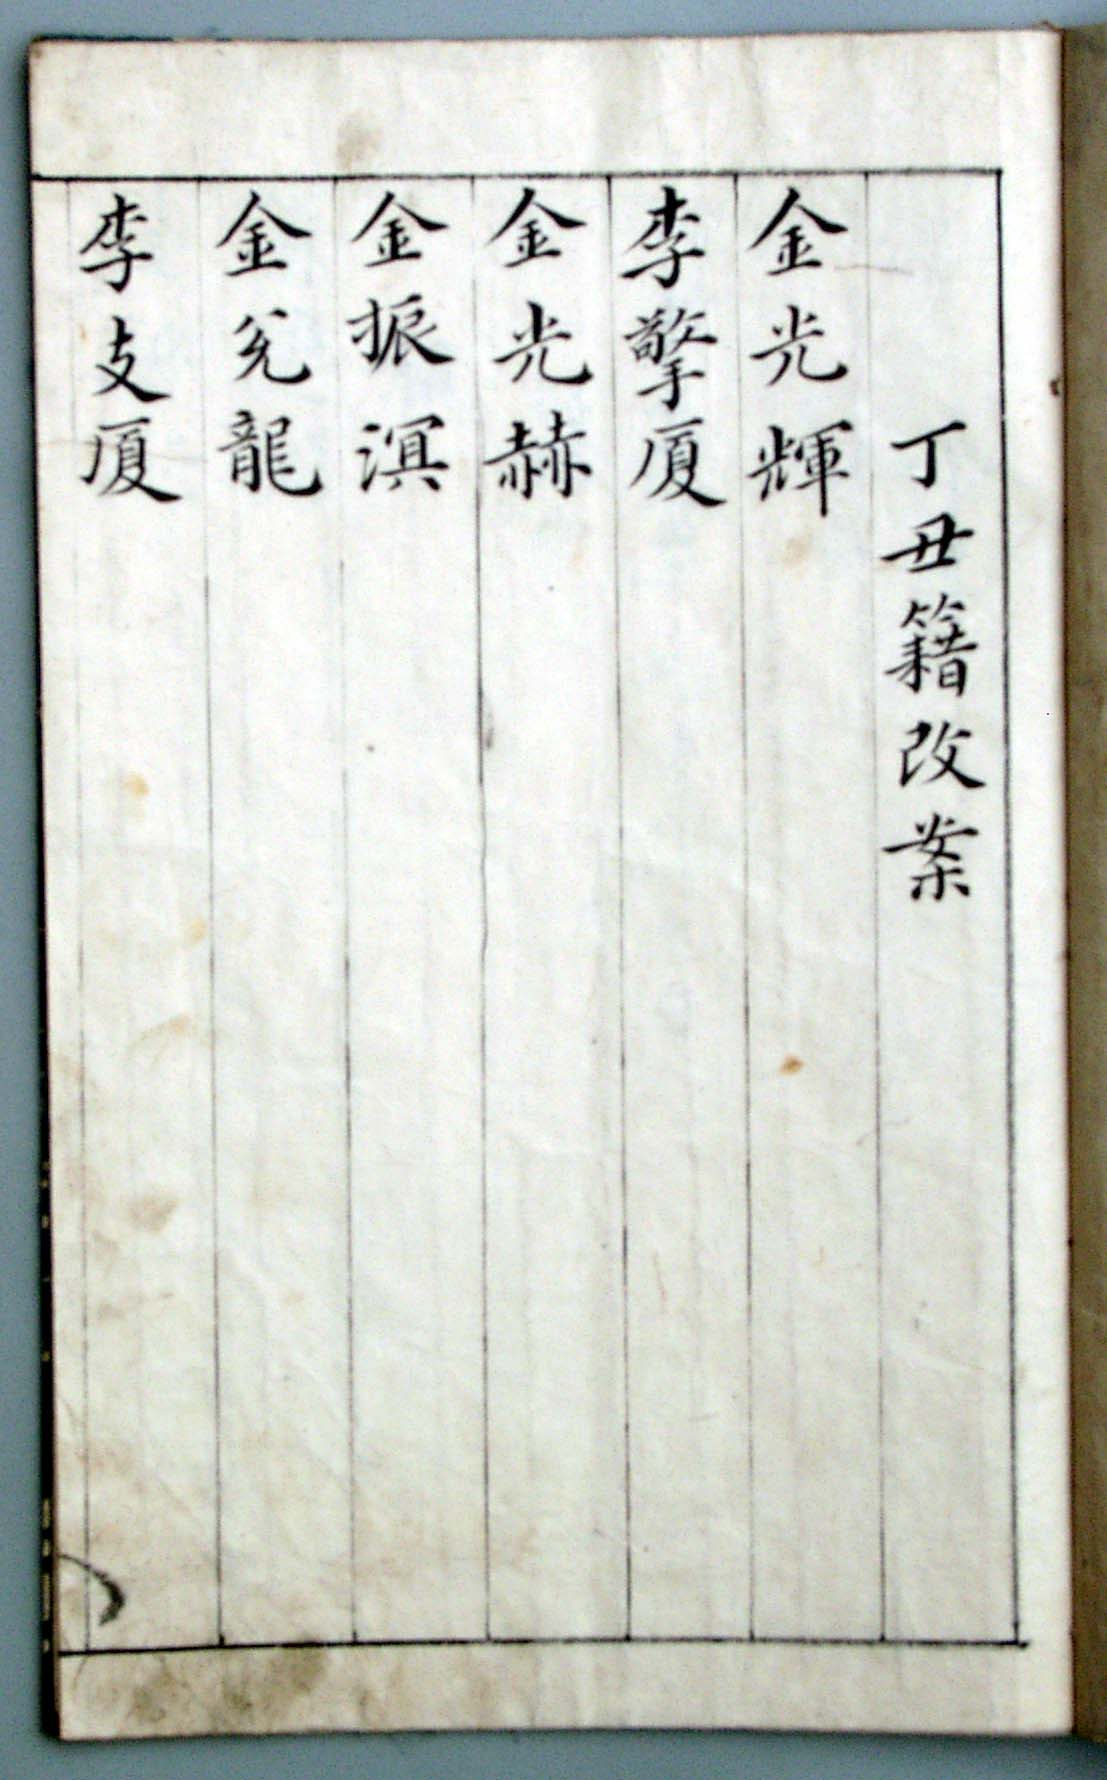 丁丑籍改案
金光輝
李擎厦
金光赫
金振溟
金兊龍
李支厦